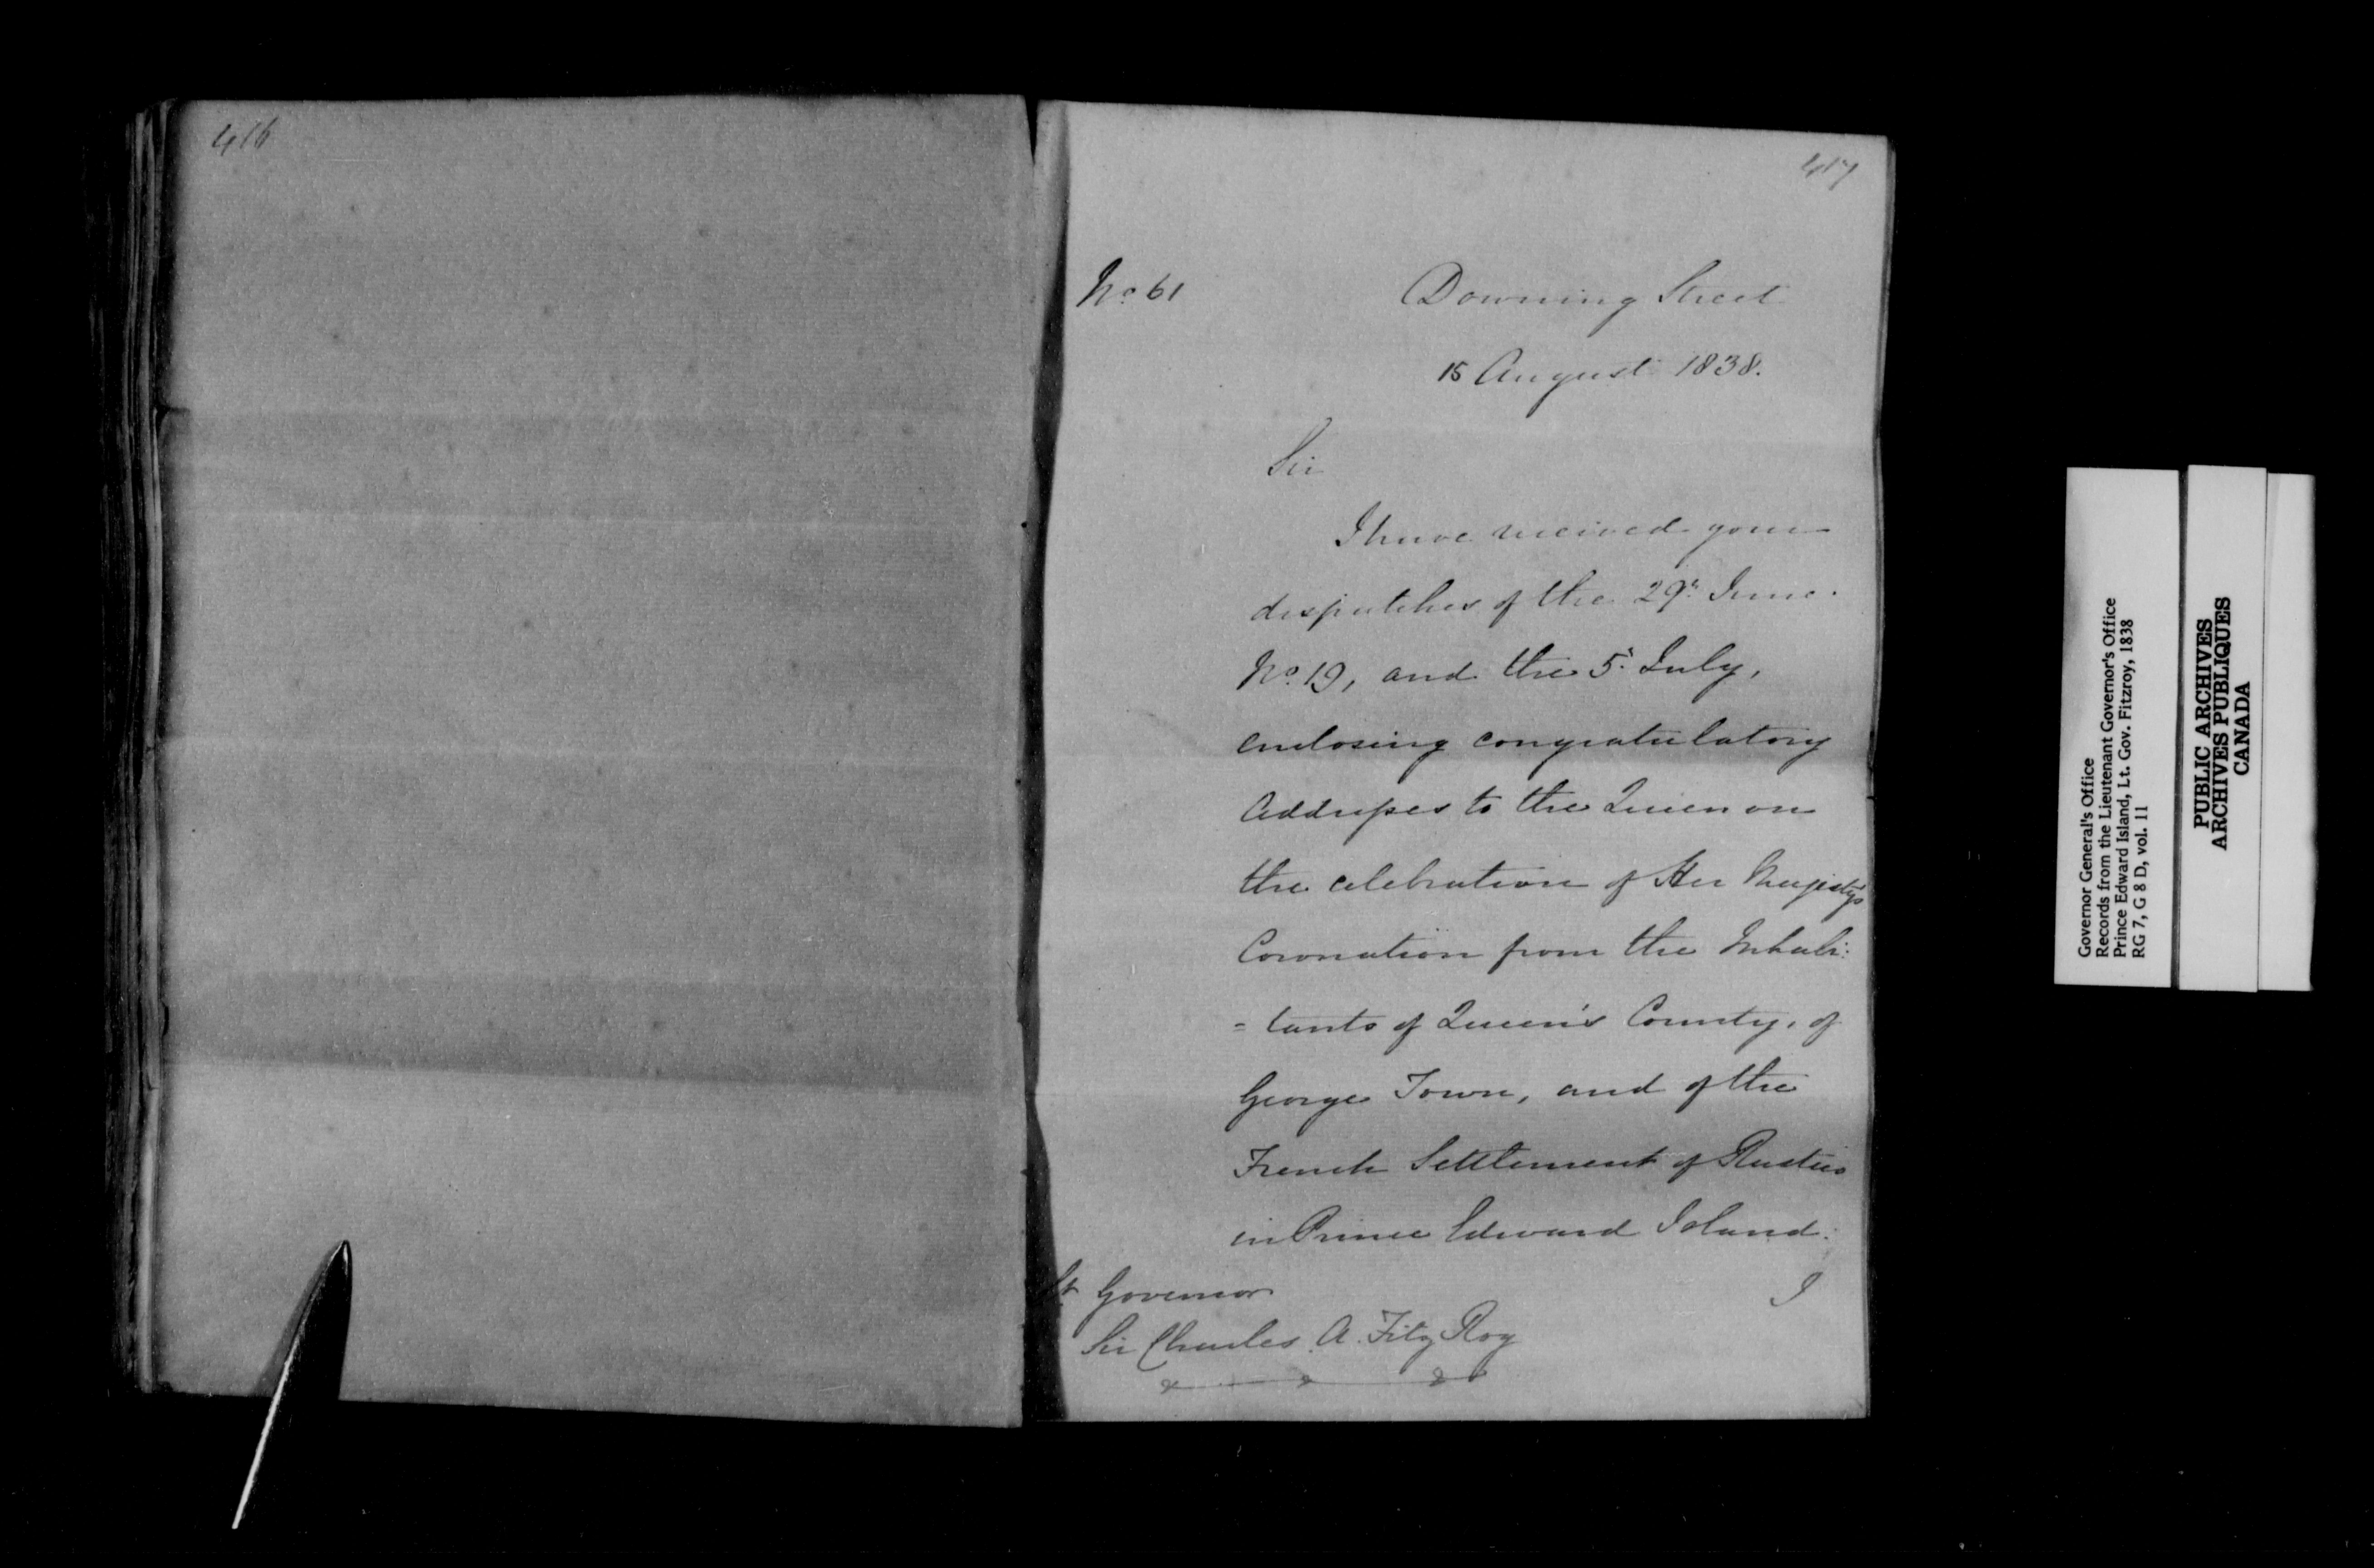 416
417
No. 61
Downing Street
15 August 1838.
Sir
I have received your
despatches of the 29th June.
No. 19, and the 5th July,
enclosing congratulatory
Addresses to the Queen on
the celebration of Her Majesty's
Coronation from the Inhabi:
= tants of Queen's County, of
George Town, and of the
French Settlement of Rustico
in Prince Edward Island.
I
Lt Governor
Sir Charles A. FitzRoy
Governor General's Office
Records from the Lieutenant Governor's Office
Prince Edward Island, Lt. Gov. Fitzroy, 1838
RG 7, G 8 D, vol. 11
PUBLIC ARCHIVES
ARCHIVES PUBLIQUES
CANADA